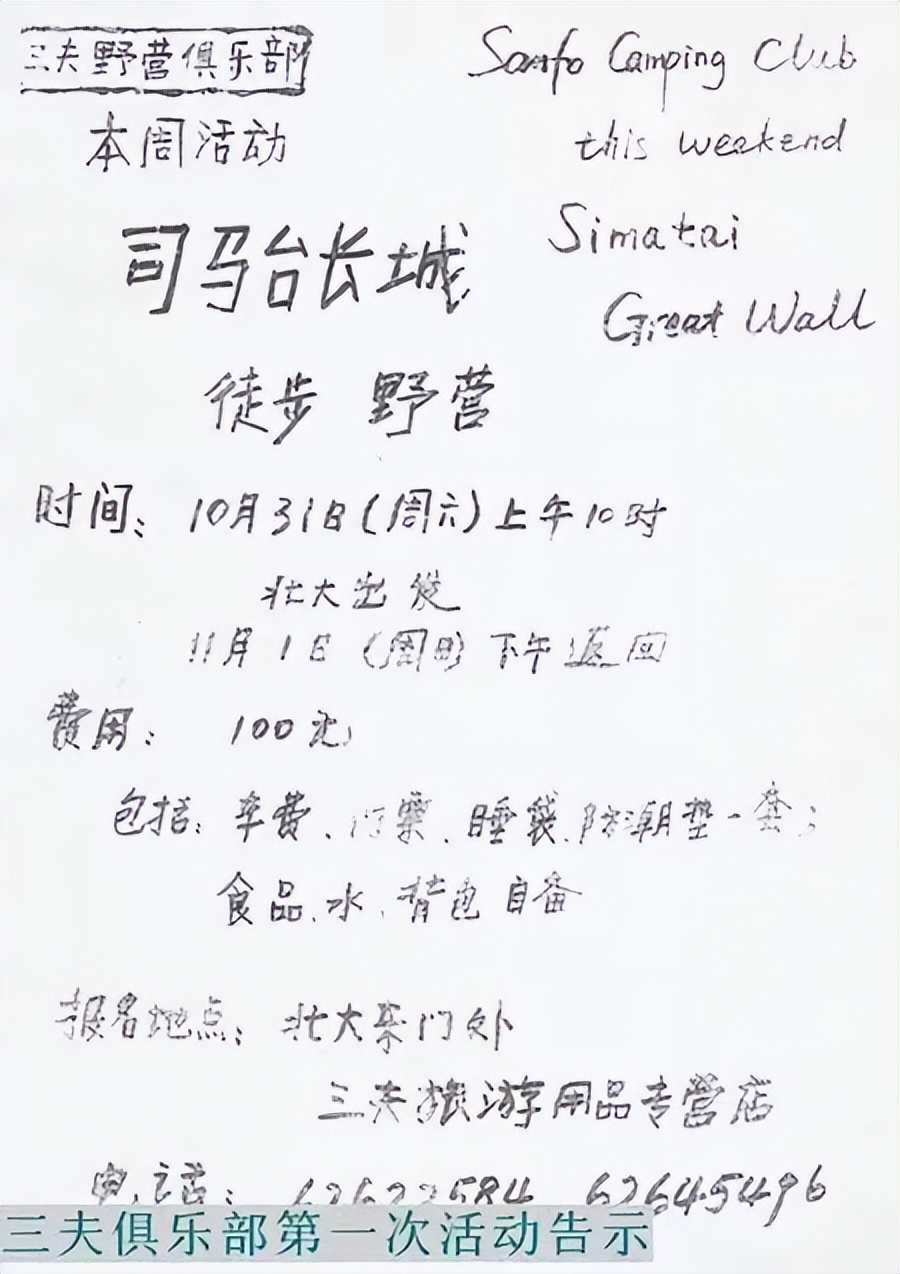 三夫野营俱乐部 Sanfo Camping Club
本周活动 this weekend
司马台长城 Simatai
Great Wall
徒步 野营
时间: 10月31日(周六)上午10时
北大出发
11月1日(周日)下午返回
费用: 100元
包括: 车费、门票、睡袋、防潮垫一套;
食品、水、背包自备
报名地点: 北大东门外
三夫旅游用品专营店
电话: 62622584 62645496
三夫俱乐部第一次活动告示